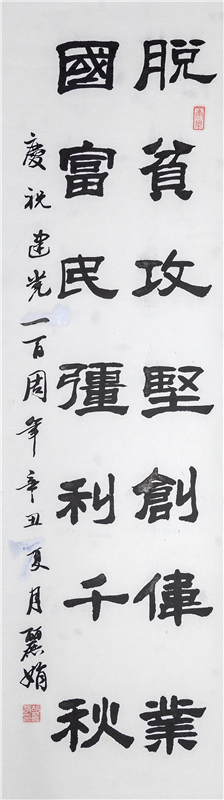 脫貧攻堅創偉業
國富民彊利千秋
慶祝建党一百周年辛丑夏月麗娟